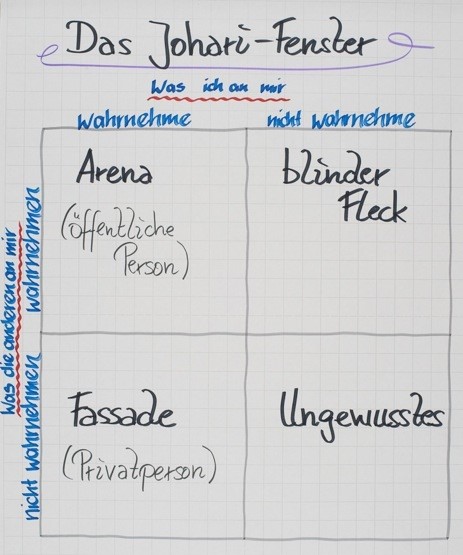 Das Johari-Fenster
Was ich an mir
wahrnehme
nicht wahrnehme
Was die anderen an mir
wahrnehmen
nicht wahrnehmen
Arena
(öffentliche
Person)
blinder
Fleck
Fassade
(Privatperson)
Ungewusstes